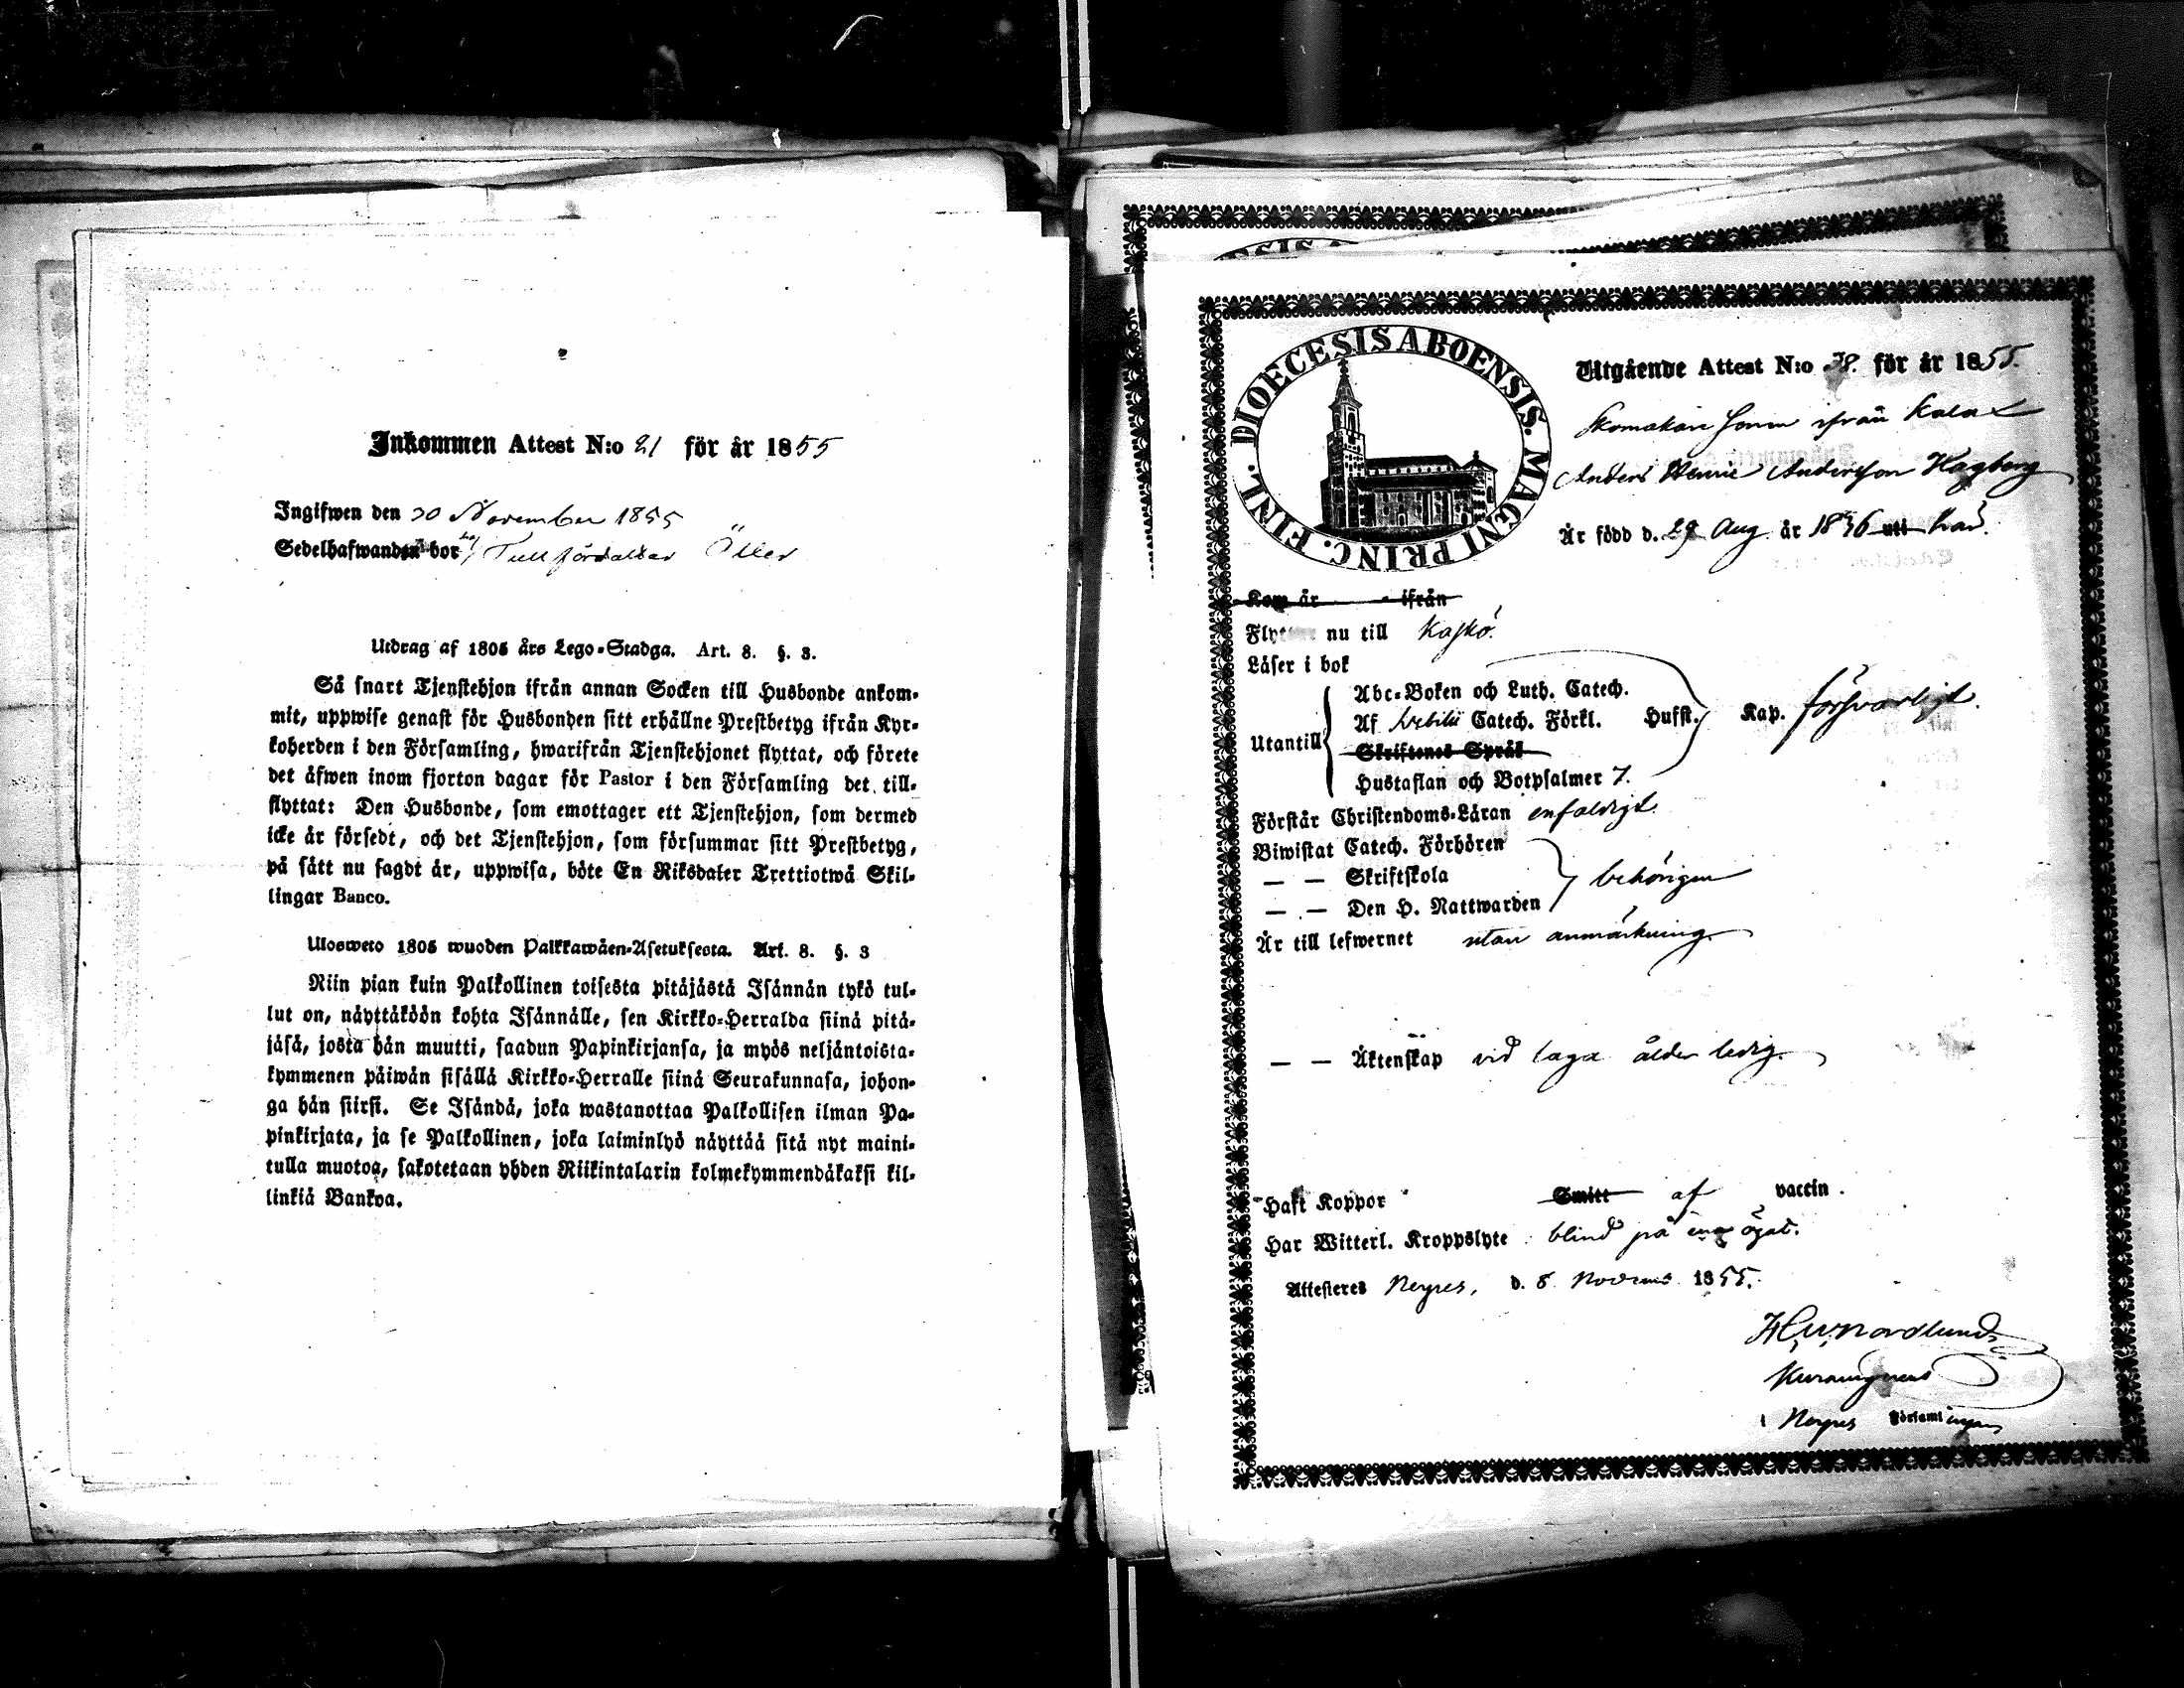 Inkommen Attest N:o 21 för år 1855
Ingifwen den 30 November 1855
Sedelhafwanden bor Tullförvaltar Öller
Utdrag af 1805 års Lego-Stadga. Art. 8. §. 3.
Så snart Tjenstehjon ifrån annan Socken till Husbonde ankom-
mit, uppwise genast för Husbonden sitt erhållne Prestbetyg ifrån Kyr-
koherden i den Församling, hwarifrån Tjenstehjonet flyttat, och förete
det äfwen inom fjorton dagar för Pastor i den Församling det till-
flyttat: Den Husbonde, som emottager ett Tjenstehjon, som dermed
icke är försedt, och det Tjenstehjon, som försummar sitt Prestbetyg,
på sätt nu sagdt är, uppwisa, böte En Riksdaler Trettiotwå Skil-
lingar Banco.
Ulosweto 1805 wuoden Palkkawäen-Asetuksesta. Art. 8. §. 3
Niin pian kuin Palkollinen toisesta pitäjästä Isännän tykö tul-
lut on, näyttäköön kohta Isännälle, sen Kirkko-Herralda siinä pitä-
jäsä, josta hän muutti, saadun Papinkirjansa, ja myös neljäntoista-
kymmenen päiwän sisällä Kirkko-Herralle siinä Seurakunnasa, johon-
ga hän siirsi. Se Isändä, joka wastanottaa Palkollisen ilman Pa-
pinkirjata, ja se Palkollinen, joka laiminlyö näyttää sitä nyt maini-
tulla muotoa, sakotetaan yhden Riikintalarin kolmekymmendäkaksi kil-
linkiä Bankoa.
DIOECESIS ABOENSIS. MAGNI PRINC. FINL.
Utgående Attest N:o 38. för år 1855.
Skomakare Sonen ifrån Kalax
Anders Henric Andersson Hagberg
Är född d. 29 Aug. år 1836 uti här.
Kom år ifrån
Flyttar nu till Kaskö.
Läser i bok
Utantill
Abc-Boken och Luth. Catech.
Af Svebilii Catech. Förkl. Husst. Kap. försvarligt.
Skriftenes Språk
Hustaflan och Botpsalmer 7.
Förstår Christendoms-Läran enfaldigt.
Biwistat Catech. Förhören
— — Skriftskola behörigen
— — Den H. Nattwarden
Är till lefwernet utan anmärkning.
— — Äktenskap vid laga ålder ledig.
Haft Koppor Smitt af vaccin.
Har Witterl. Kroppslyte blind på ena ögat.
Attesteres Nerpes, d. 8 Novemb 1855.
Nordlund
i Nerpes Församlingen